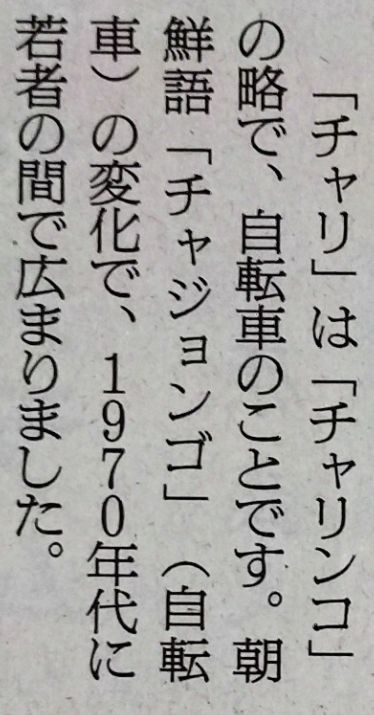 「チャリ」は「チャリンコ」
の略で、自転車のことです。朝
鮮語「チャジョンゴ」（自転
車）の変化で、1970年代に
若者の間で広まりました。